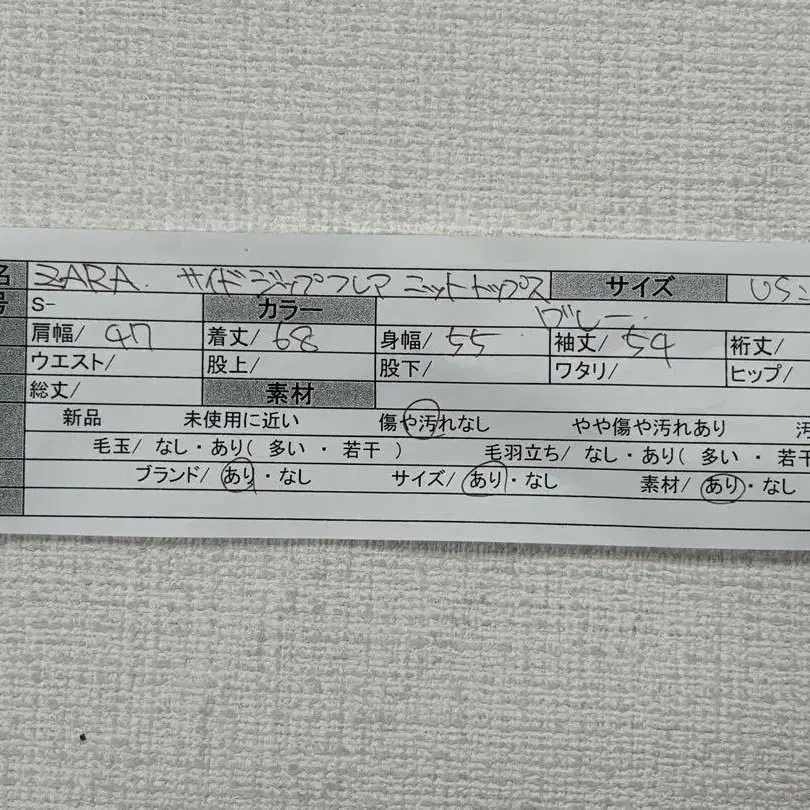 名 ZARA. サイドジップフレア ニットトップス サイズ US
号 S- カラー ブルー.
肩幅/ 47 着丈/ 68 身幅/ 55 袖丈/ 54 裄丈/
ウエスト/ 股上/ 股下/ ワタリ/ ヒップ/
総丈/ 素材
新品 未使用に近い 傷や汚れなし やや傷や汚れあり 汚
毛玉/ なし・あり( 多い ・ 若干 ) 毛羽立ち/ なし・あり( 多い ・ 若干
ブランド/ あり・なし サイズ/ あり・なし 素材/ あり・なし